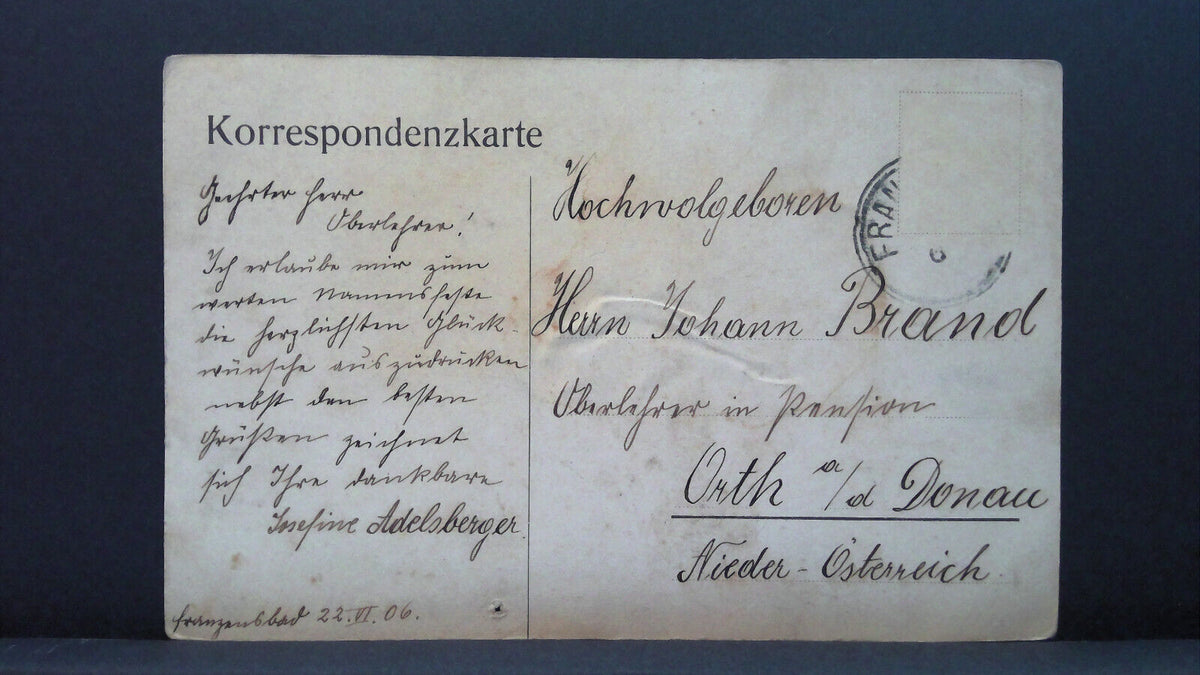 Korrespondenzkarte
Geehrter Herr
Oberlehrer!
Ich erlaube mir zum
werten Namensfeste
die herzlichsten Glück-
wünsche auszudrücken
nebst den besten
Grüßen zeichnet
sich Ihre dankbare
Josefine Adelsberger.
Franzensbad 22.VI.06.
Hochwolgeboren
Herrn Johann Brand
Oberlehrer in Pension
Orth a/d Donau
Nieder-Österreich
FRAN